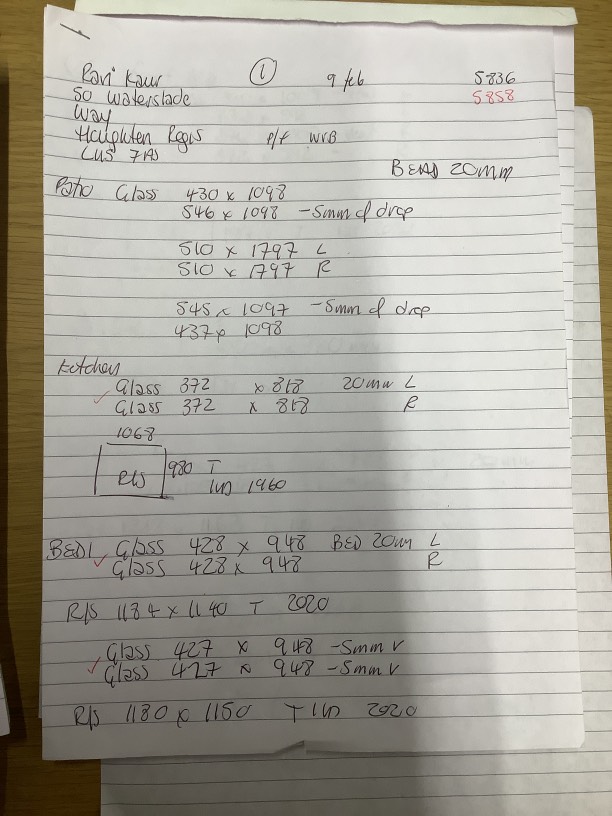 Ravi Kaur ① 9 feb 5836
50 Waterslade 5858
Way
Haughten Regis P/f WVB
LU5 7AS
BEAD 20mm
Patio Glass 430 x 1098
546 x 1098 -5mm of drop
510 x 1797 L
510 x 1797 R
545 x 1097 -5mm of drop
437 x 1098
Kitchen
Glass 372 x 818 20mm L
Glass 372 x 818 R
1068
R/S 980 T
1960
BED1 Glass 428 x 948 BED 20mm L
Glass 428 x 948 R
R/S 1184 x 1140 T 2020
Glass 427 x 948 -5mm V
Glass 427 x 948 -5mm V
R/S 1180 x 1150 T 2020